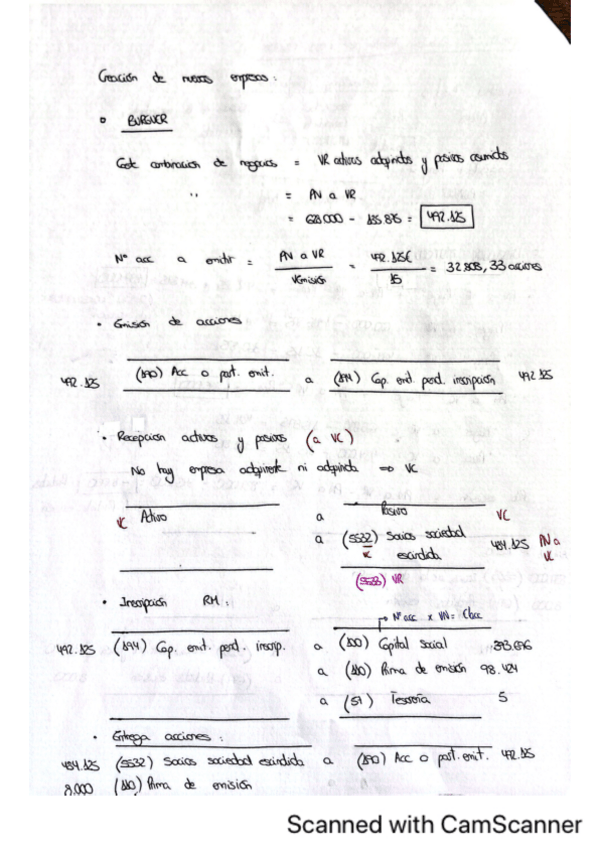 Creación de nuevas empresas:
BURGNER
Coste combinación de negocios = VR activos adquiridos y pasivos asumidos
" = PN a VR
= 628.000 - 135.875 = 492.125
Nº acc a emitir = PN a VR / Vemisión = 492.125€ / 15 = 32.808,33 acciones
• Emisión de acciones
492.125 (190) Acc o part. emit. a (194) Cap. emit. pend. inscripción 492.125
• Recepción activos y pasivos (a VC)
No hay empresa adquirente ni adquirida => VC
VC Activo a Pasivo VC
a (5532) Socios sociedad escindida 484.125 PN a VC
VC
(5533) VR
• Inscripción RM:
Nº acc. x VN =
492.125 (194) Cap. emit. pend. inscrip. a (100) Capital social 393.696
a (110) Prima de emisión 98.424
a (57) Tesorería 5
• Entrega acciones:
484.125 (5532) Socios sociedad escindida a (190) Acc o part. emit. 492.125
8.000 (110) Prima de emisión
Scanned with CamScanner